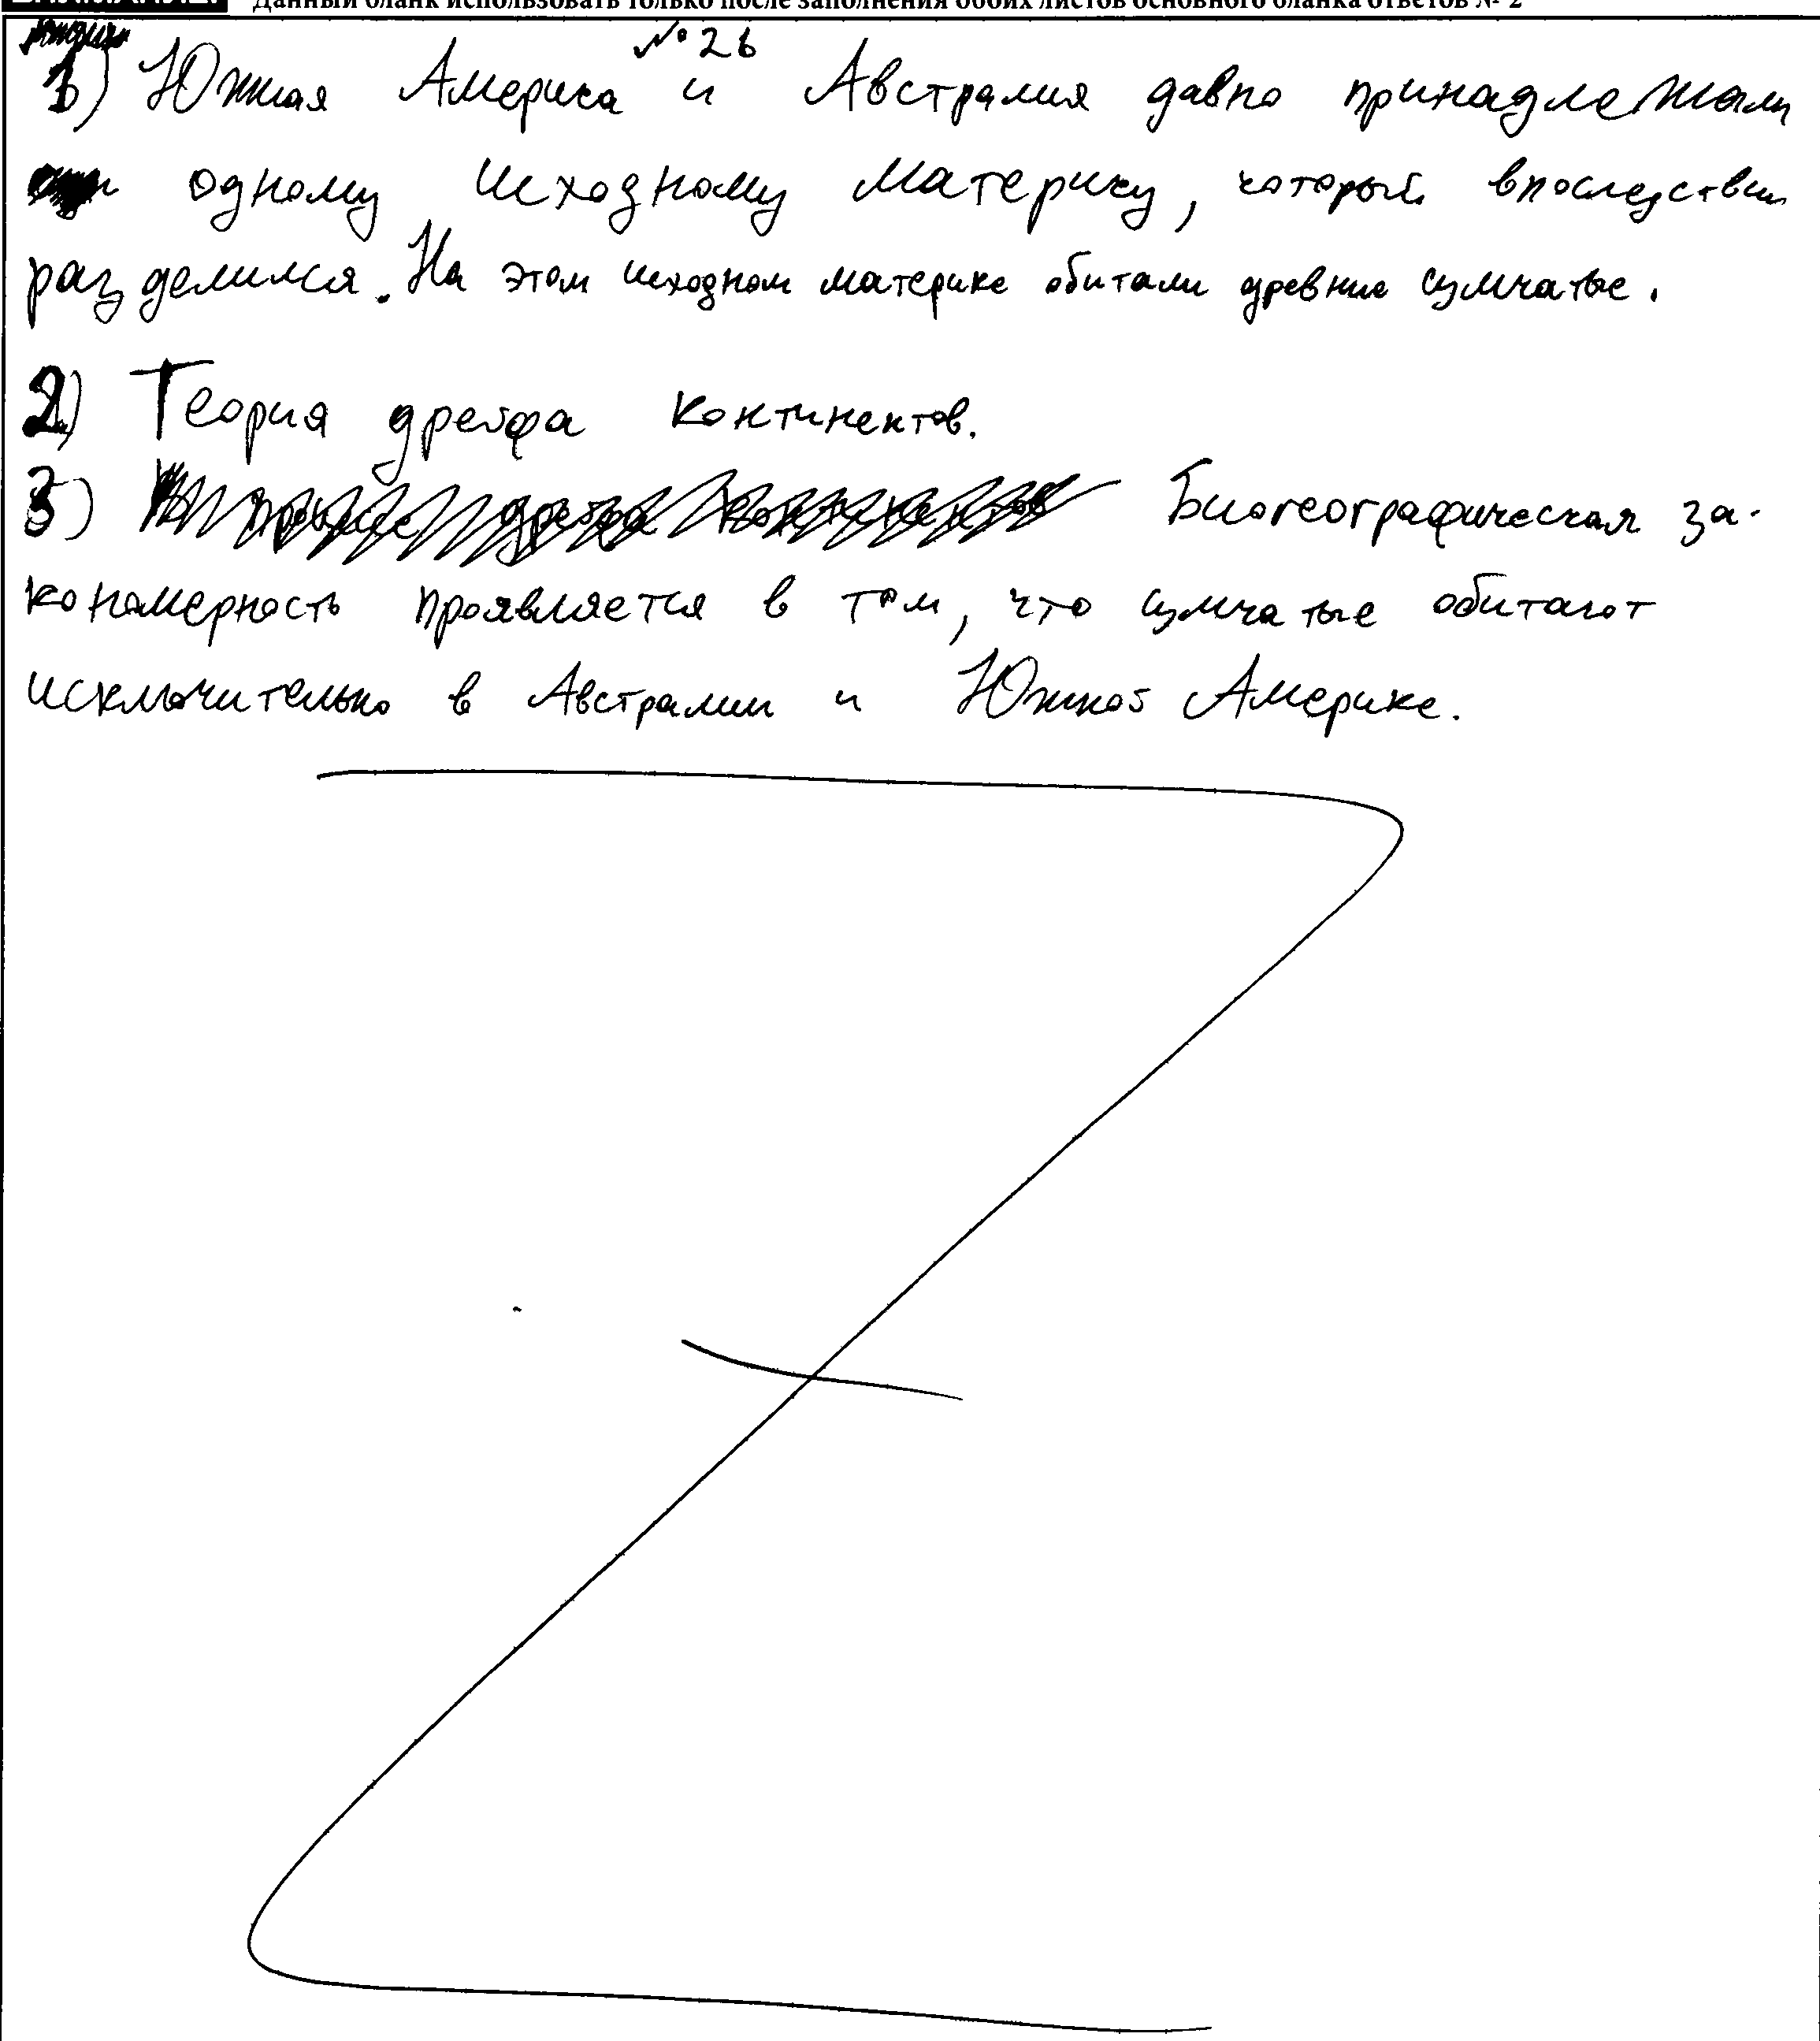 Данный бланк использовать только после заполнения обоих листов основного бланка ответов № 2
№ 26
1) Южная Америка и Австралия давно принадлежали
одному исходному материку, который впоследствии
разделился. На этом исходном материке обитали древние сумчатые.
2) Теория дрейфа континентов.
3) Биогеографическая за-
кономерность проявляется в том, что сумчатые обитают
исключительно в Австралии и Южной Америке.